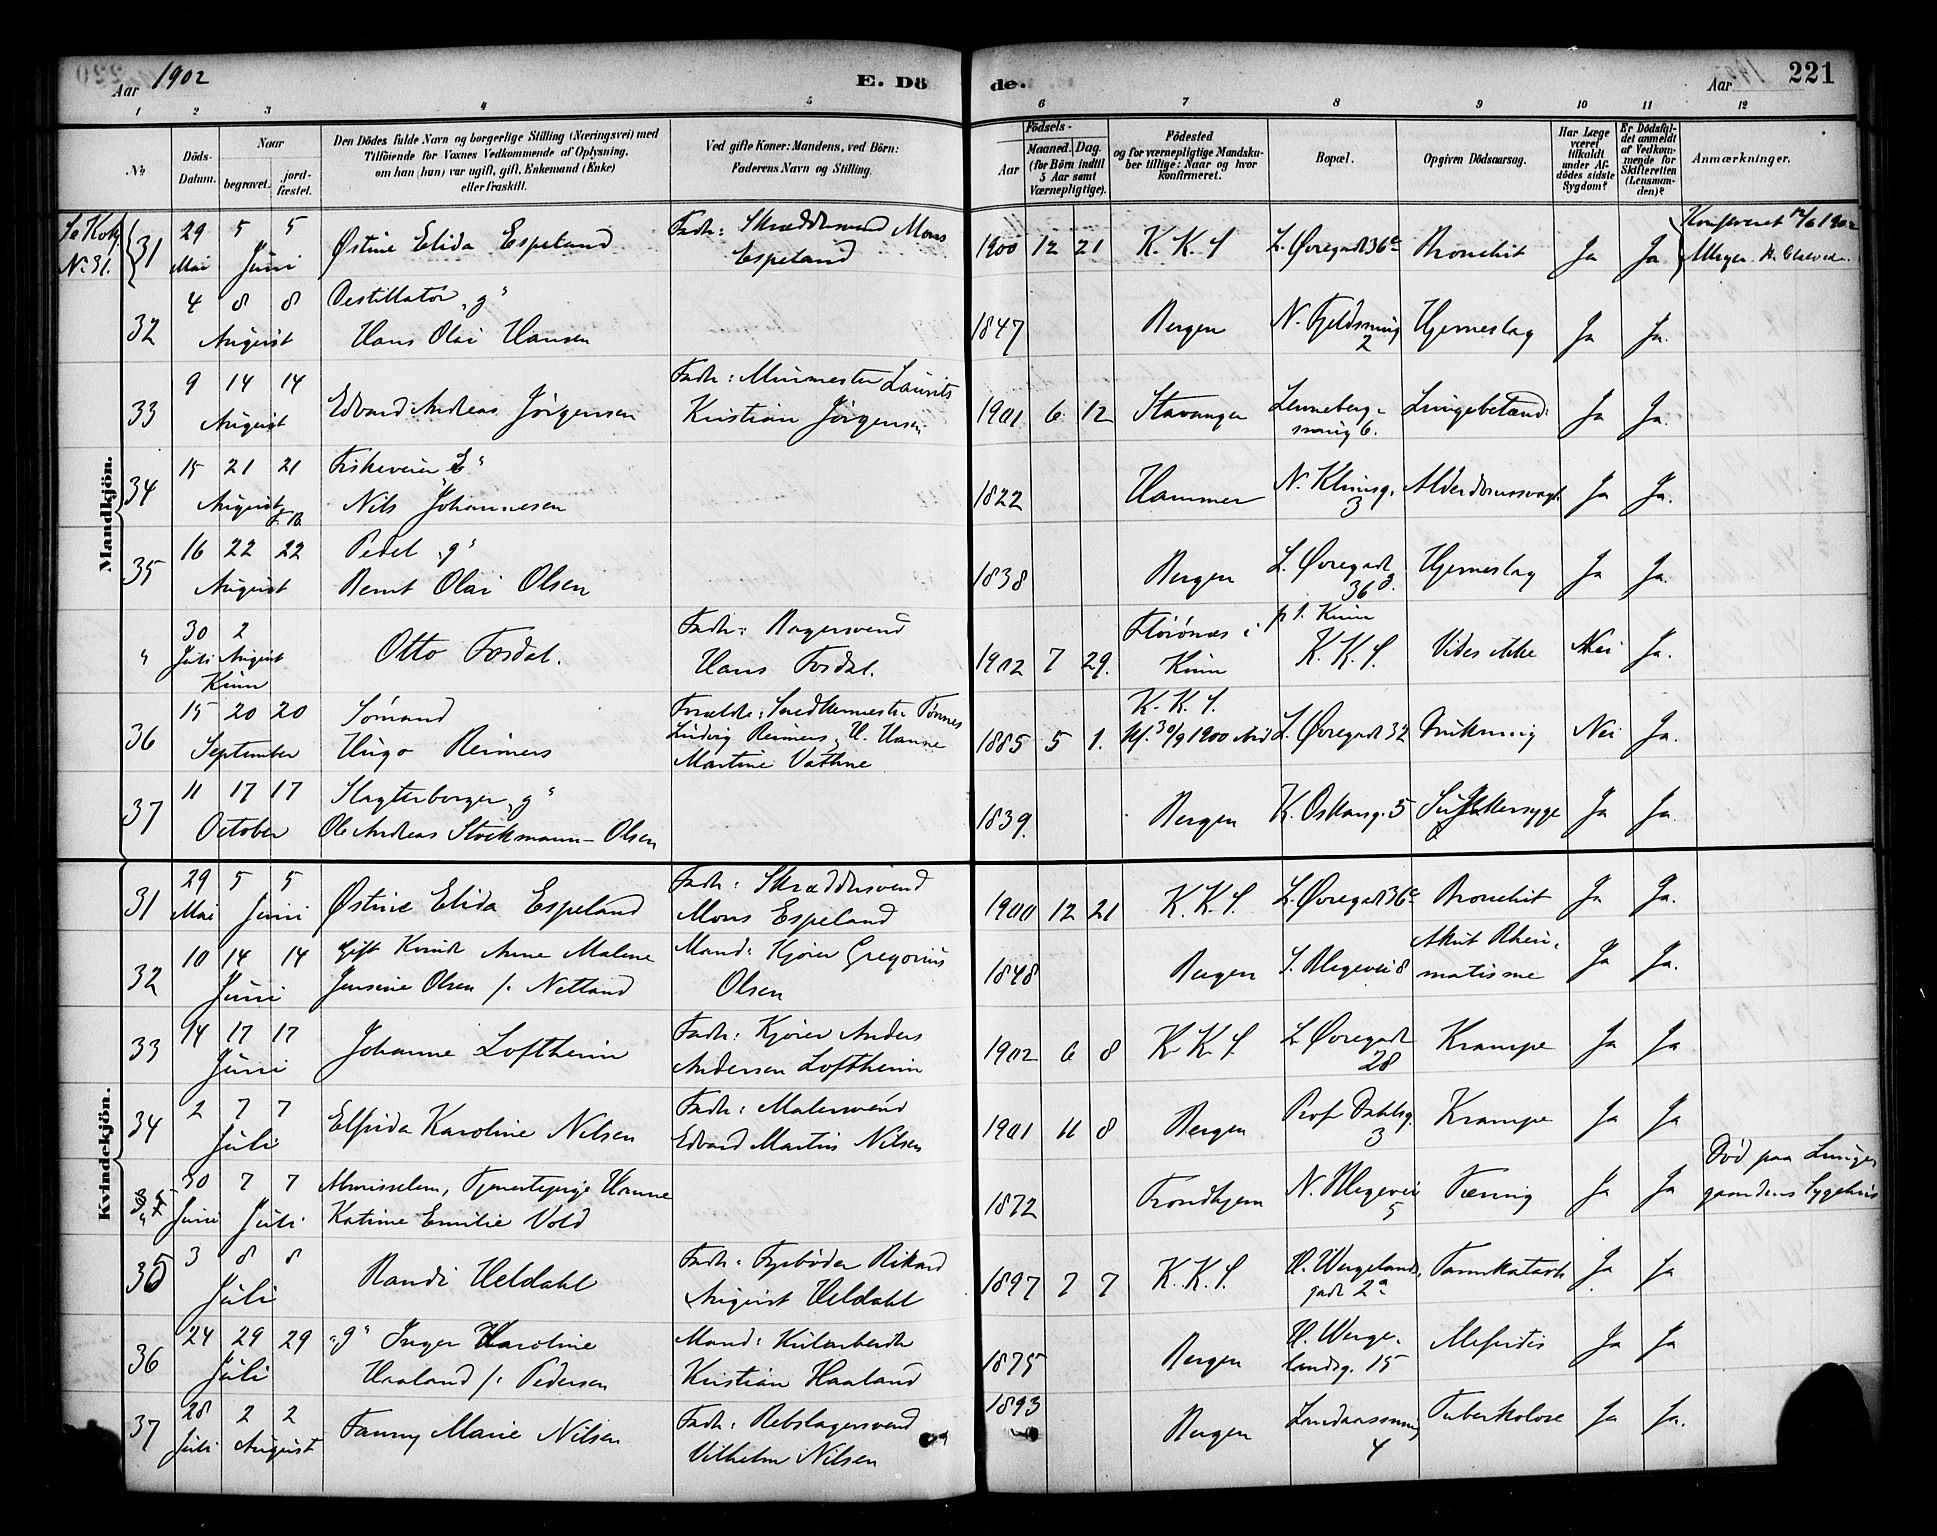 Aar 1902 E. Döde. Aar 221
1 2 3 4 5 6 7 8 9 10 11 12
No
Döds-Datum.
Naar
begravet.
jordfæstet.
Den Dödes fulde Navn og borgerlige Stilling (Næringsvei) med
Tilföiende for Voxnes Vedkommende af Oplysning,
om han (hun) var ugift, gift, Enkemand (Enke)
eller fraskilt.
Ved gifte Koner: Mandens, ved Börn:
Faderens Navn og Stilling.
Födsels-
Aar
Maaned. Dag.
(for Börn indtil
5 Aar samt
Værnepligtige).
Födested
og for værnepligtige Mandska-
ber tillige: Naar og hvor
konfirmeret.
Bopæl.
Opgiven Dödsaarsag.
Har Læge
været
tilkaldt
under Af-
dödes sidste
Sygdom?
Er Dödsfal-
det anmeldt
af Vedkom-
mende for
Skifteretten
(Lensman-
den)?
Anmærkninger.
Mandkjön.
Se Kvk
No 31.
31 29 Mai 5 5 Juni Østine Elida Espeland Fader: Skræddersvend Mons Espeland 1900 12 21 K. K. S L. Øvregade 36c Bronchit Ja Ja Konfereret 12/6 1902
32 4 8 8 August Destillatör "g" Hans Olai Hansen 1847 Bergen N. Fjeldsmug 2 Hjerneslag Ja Ja.
33 9 14 14 August Edvard Andreas Jörgensen Fader: Murmester Laurits Kristian Jörgensen 1901 6 12 Stavanger Lennebergsmug 6. Lungebetænd: Ja Ja.
34 15 21 21 August Nils Johannesen 1822 Hammer 3 Alderdomssvagh Ja Ja.
35 16 22 22 August Pedel "g" Bernt Olai Olsen 1838 Bergen L. Øvregade 36 Hjerneslag Ja Ja.
" 30 Juli 2 August Kinn Otto Fosdal. Fader: Bagersvend Hans Fosdal. 1902 7 29. Florönæs i Kinn p t. Kinn K. K. S. Vides ikke Nei Ja.
36 15 20 20 September Sömand Hugo Reimers Forældre: Snedkermester Tönnes Ludvig Reimers, H. Hanne Martine Vathne 1885 5 1. K. K. S. kf. 30/9 1900 L. Øvregade 32 Drukning Nei Ja.
37 11 17 17 October Slagterborger "g" Ole Andreas Stockmann-Olsen 1839. Bergen K. Oskarsg. 5 Sukkersyge Ja Ja
Kvindekjön.
31 29 Mai 5 5 Juni Østine Elida Espeland Fader: Skræddersvend Mons Espeland 1900 12 21 K. K. S. L. Øvregade 36c Bronchit Ja Ja.
32 10 14 14 Juni Gift Kvinde Anne Malene Jensine Olsen f. Netland Mand: Kjörer Gregorius Olsen 1848 Bergen S. Blegevei 8 Akut Rheumatisme Ja Ja.
33 14 17 17 Juni Johanne Loftheim Fader: Kjörer Anders Andersen Loftheim 1902 6 8 K K S. L. Øvregade 28 Krampe Ja Ja
34 2 7 7 Juli Elfrida Karoline Nilsen Fader: Malersvend Edvard Martin Nilsen 1901 11 8 Bergen Prof Dahlsg. 3 Krampe Ja Ja
30 Juni 7 7 Juli Tjenestepige Hanne Katrine Emilie Vold 1872 Trondhjem N. Blegevei 5 Tæring Ja Ja Död paa Lungegaardens Sygehus
35 3 8 8 Juli Randi Heldahl Fader: Fyrböder Rikard August Heldahl 1897 7 7 K. K. S. H. Wergelands gade 2a Tarmkatarrh Ja Ja
36 24 29 29 Juli "g" Inger Karoline Haaland f. Pedersen Mand: Kularbeider Kristian Haaland 1875 Bergen H. Wergelandsg. 15 Ja Ja
37 28 Juli 2 2 August Fanny Marie Nilsen Fader: Rebslagersvend Vilhelm Nilsen 1893 Bergen 4 Tuberkolose Ja Ja.